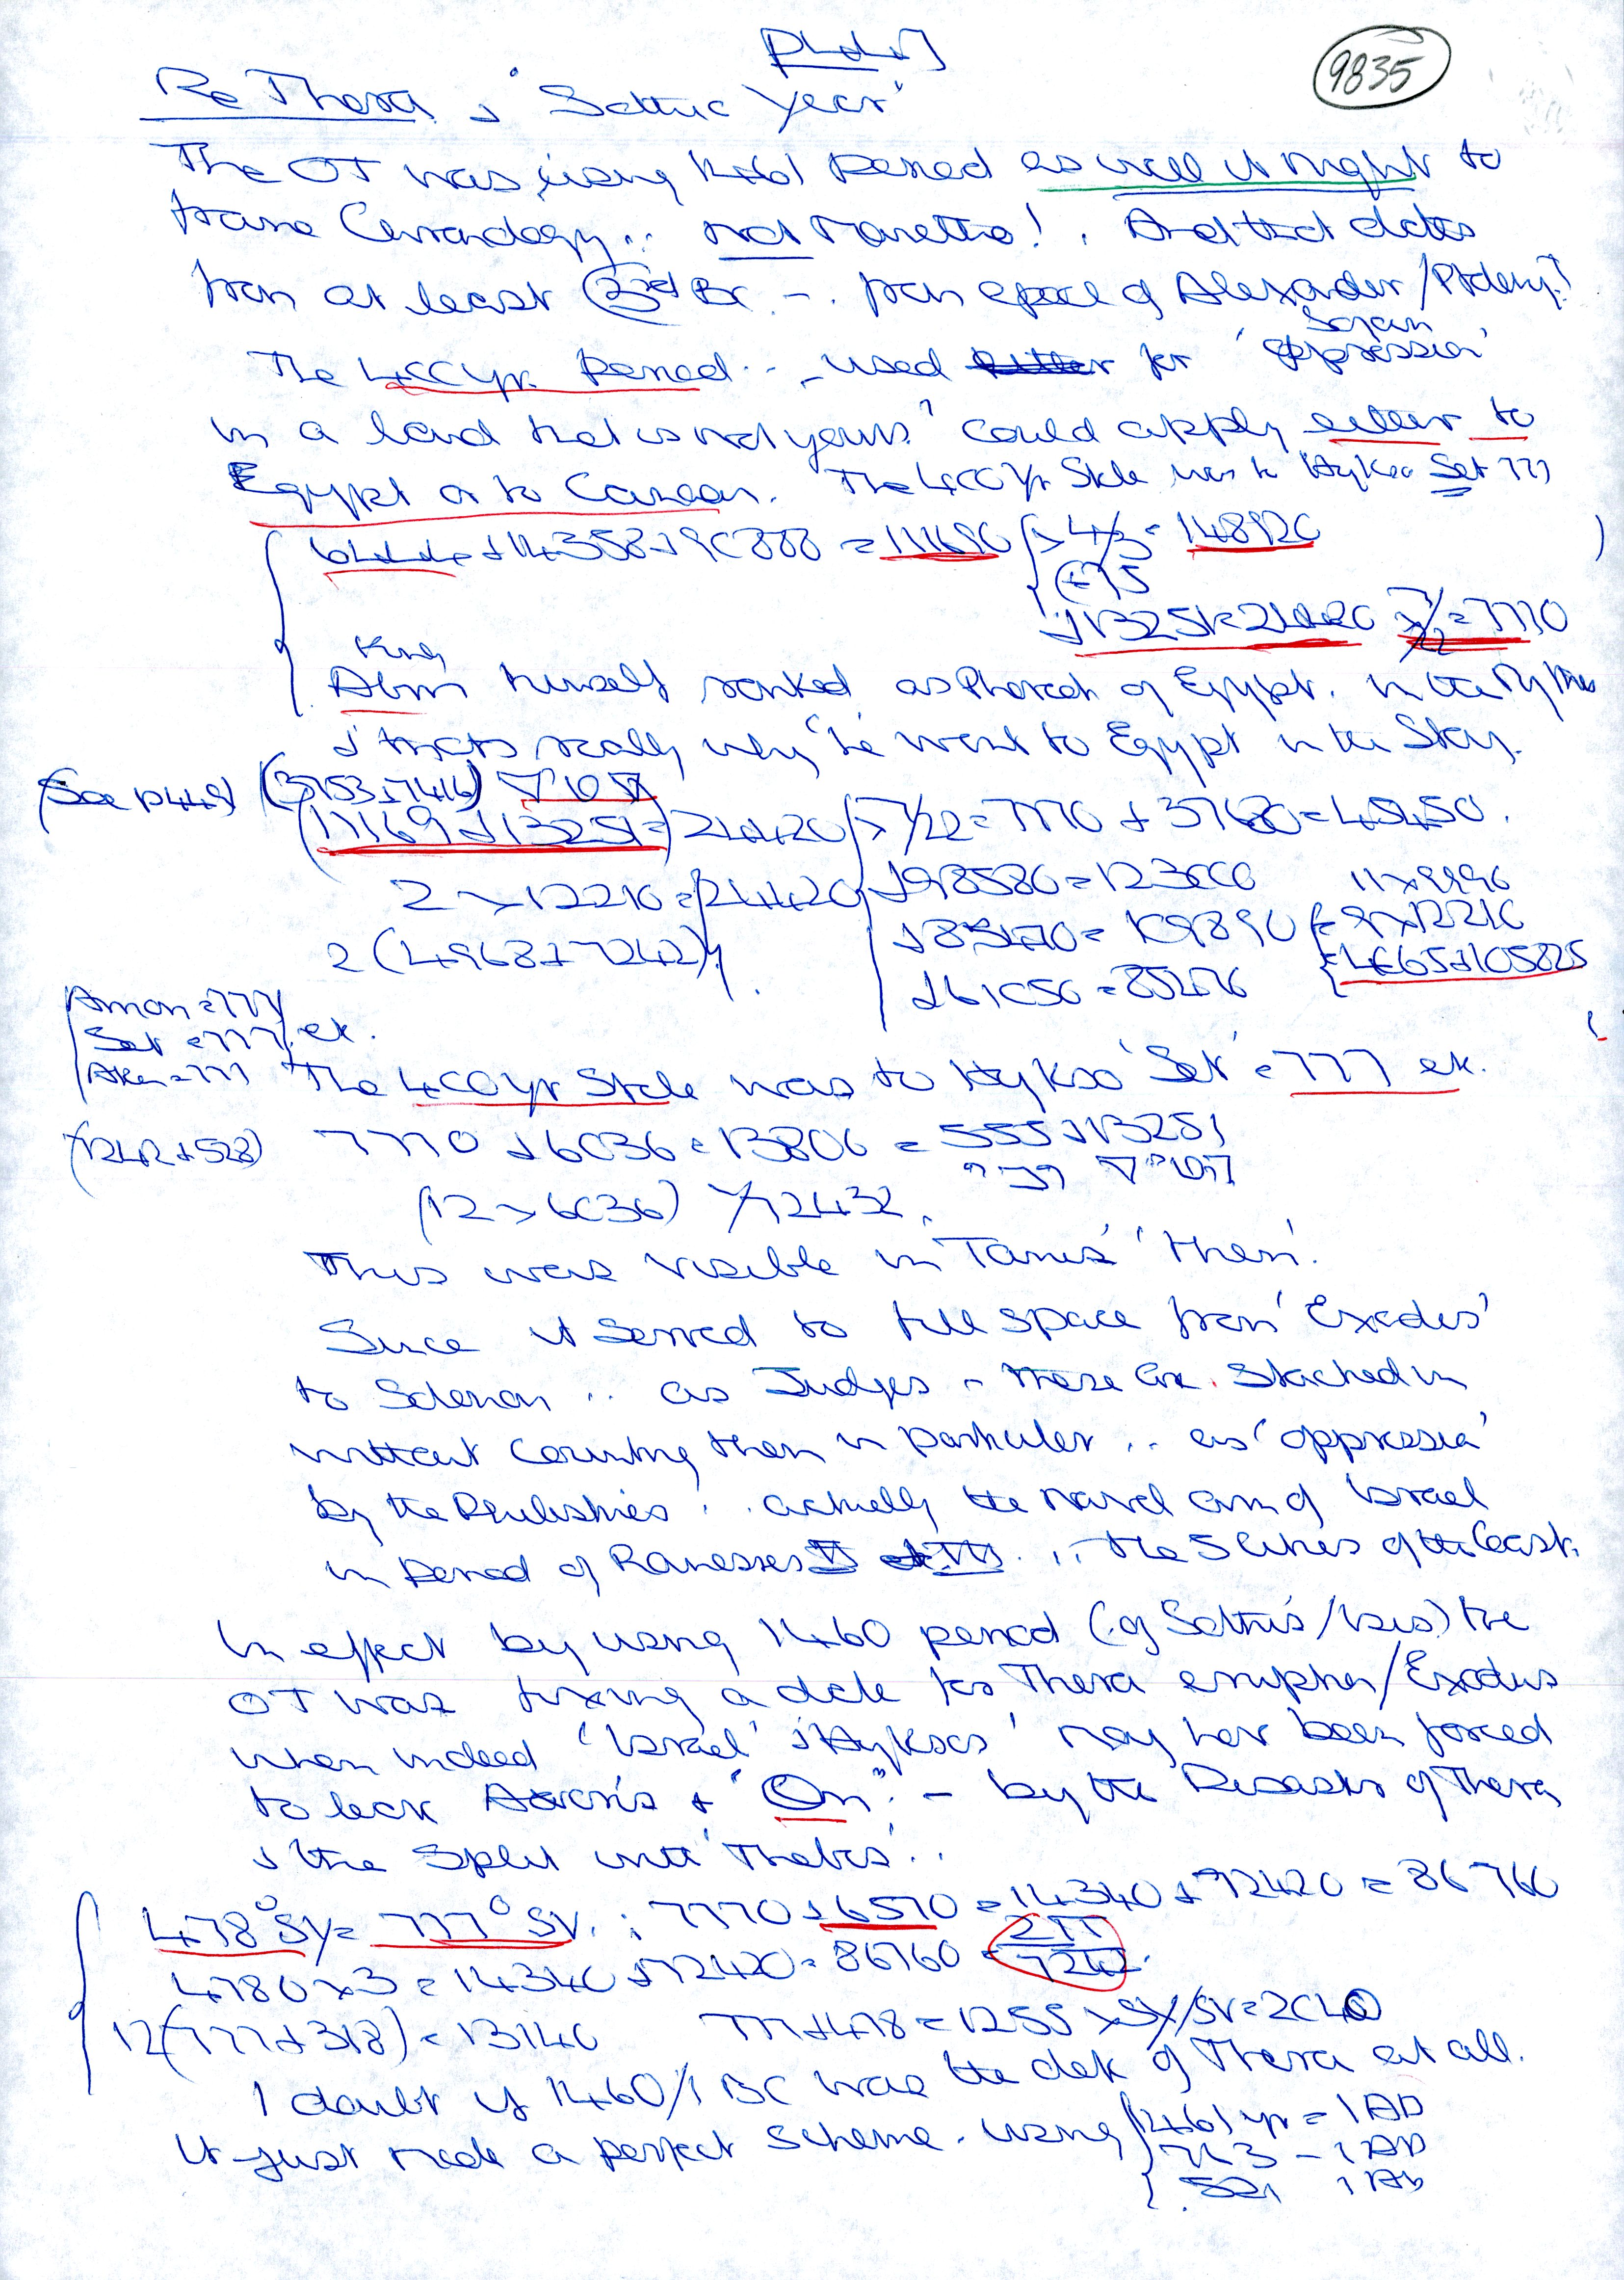 9835
Re Thera & 'Sothic Year'
The OT was using 1461 period as well it might to
frame Chronology .. not Manetho! . And that dates
from at least 3rd BC - . from epoch of Alexander/Ptolemy?
The 400 yr. Period .. - used for 'oppression'
in a land that is not yours' could apply either to
Egypt or to Canaan. The 400 Yr Stele was to Hykso Set 777
6444 + 14358 + 90888 = 111690 × 4/3 = 148920
+ 13251 = 24420 × 7/22 = 7770
King
Abm himself ranked as Pharaoh of Egypt. in the
& that's really why he went to Egypt in the Story.
(See p449) (3753 + 7416)
(11169 + 13251 =) 24420 × 7/22 = 7770 + 37680 = 45450.
2 × 12210 = 24420 + 98580 = 123000 11 × 9990
2 (4968 + 7242) + 85470 = 109890 = 9 × 12210
+ 61050 = 85470 = 4065 + 105825
Amon = 777
Set = 777 ek.
Aken = 777
The 400 yr Stele was to Hykso 'Set' = 777 ek.
(1242 + 528) 7770 + 6036 = 13806 = 555 + 13251
(12 × 6036) 72432.
This was visible in Tanis 'then'.
Since it served to fill space from 'Exodus'
to Solomon .. as Judges - these are stacked in
without counting them in particular .. as 'oppression'
by the Philistines .. actually the naval arm of Israel
in period of Ramesses .. the 5 cities of the Coast.
In effect by using 1460 period (of Sothis/Isis) the
OT was fixing a date for Thera eruption/Exodus
when indeed 'Israel' & 'Hyksos' may have been forced
to leave Avaris & "On". - by the Disaster of Thera
& the split with 'Thebes' ..
478° SY = 777° SV. : 7770 + 6570 = 14340 + 72420 = 86760
4780 × 3 = 14340 + 72420 = 86760 = 2π
7242
12(777 + 318) = 13140 777 + 478 = 1255 × SY/SV = 2040
I doubt if 1460/1 BC was the date of Thera at all.
It just made a perfect scheme. using 1461 yr = 1 AD
763 - 1 AD
521 1 AD